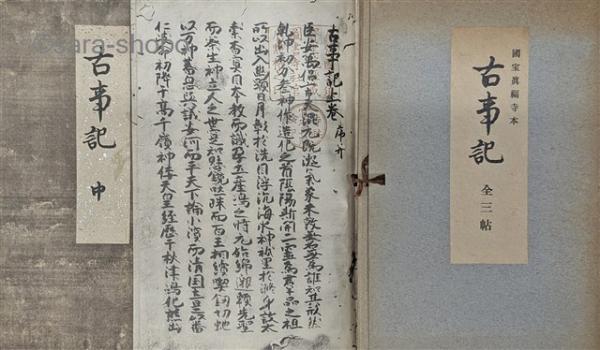 國宝真福寺本
古事記
全三帖
古事記上卷 序并
臣安萬侶言夫混元既凝氣象未效無名無爲誰知其形然
乾坤初分參神作造化之首陰陽斯開二靈爲群品之祖
所以出入幽顯日月彰於洗目浮沈海水神祇呈於滌身故太
素杳冥因本教而識孕土產嶋之時元始綿邈頼先聖
而察生神立人之世寔知懸鏡吐珠而百王相續喫釼切虵
以万神蕃息歟議安河而平天下論小濱而清国土是以番
仁岐命初降于高千嶺神倭天皇經歷于秋津嶋化熊出
古事記 中